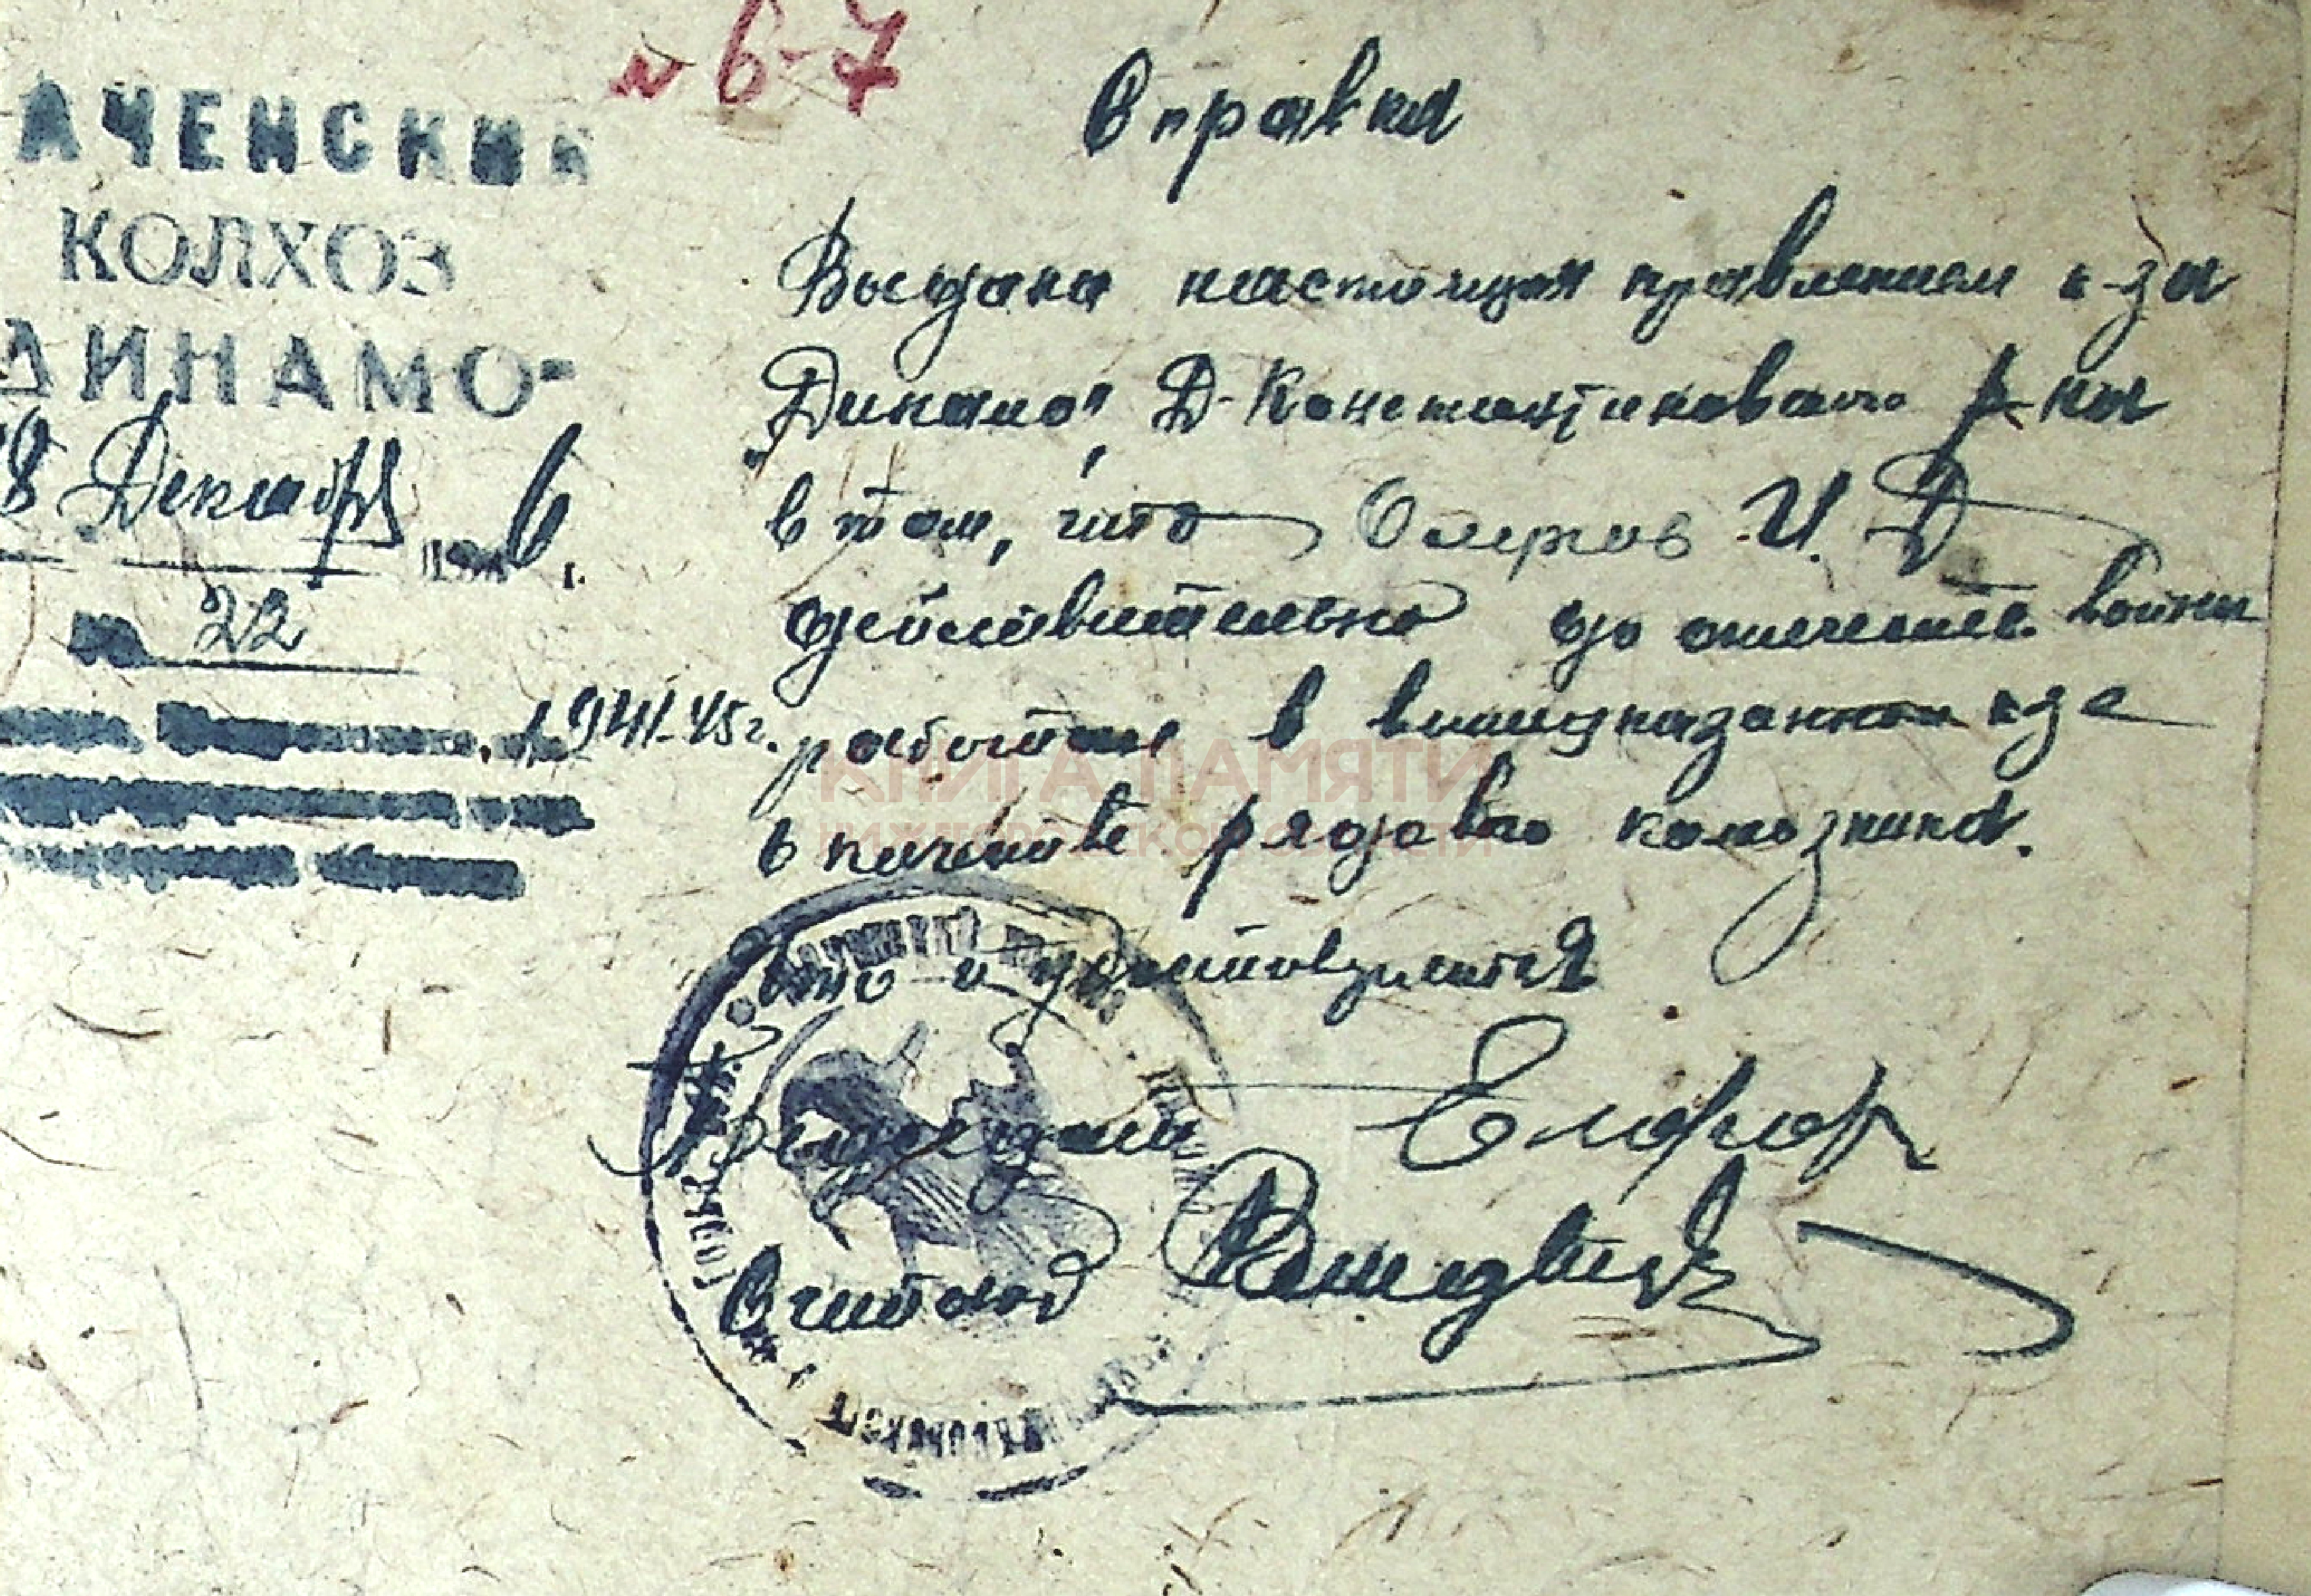 № 6-7
АЧЕНСКИЙ
КОЛХОЗ
ДИНАМО"
8 Декабря 1946 г.
№ 22
Справка
Выдана настоящая правлением к-за
"Динамо" Д-Константиновского р-на
в том, что И. Д.
действительно до отечеств. войны
1941-45 г. работал в вышеуказанном к-зе
в качестве рядового колхозника.
что и удостоверяется
Председат.
Счетовод
КНИГА ПАМЯТИ
НИЖЕГОРОДСКОЙ ОБЛАСТИ